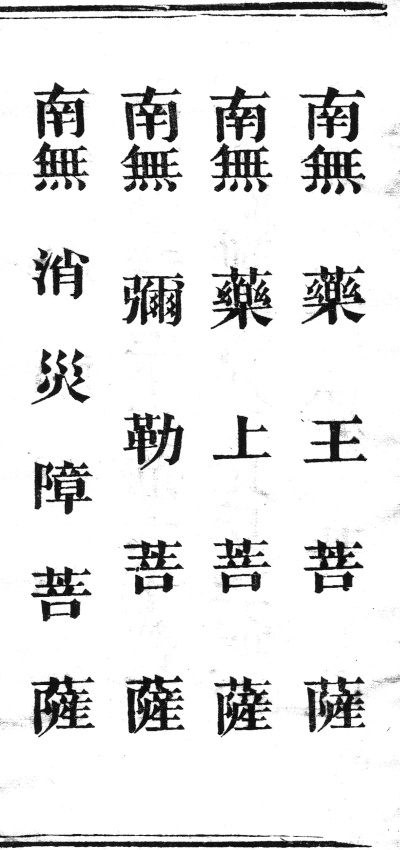 南無藥王菩薩
南無藥上菩薩
南無彌勒菩薩
南無消災障菩薩